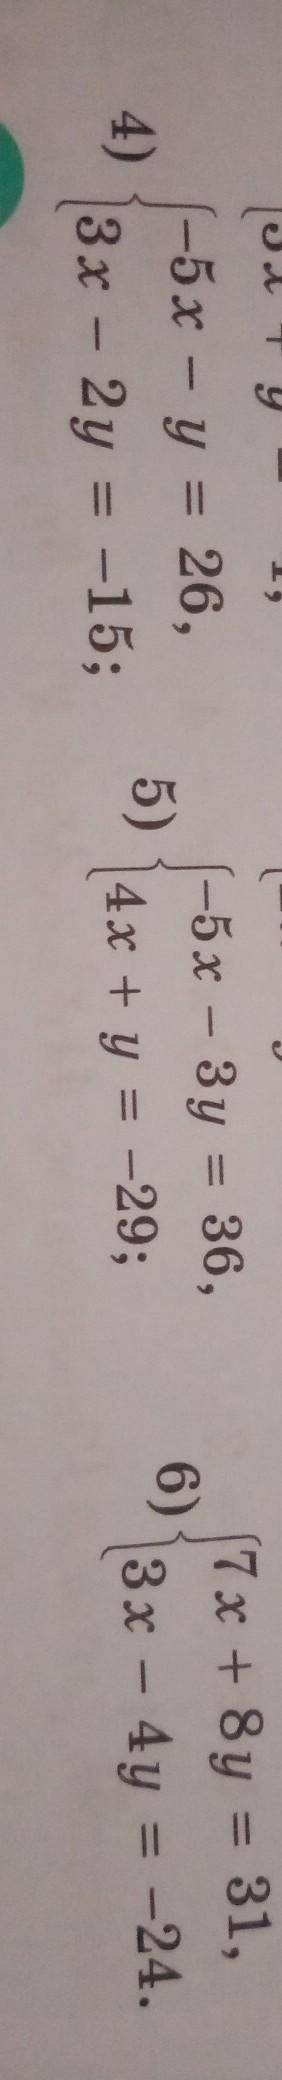 4) { -5x - y = 26,
3x - 2y = -15;
5) { -5x - 3y = 36,
4x + y = -29;
6) { 7x + 8y = 31,
3x - 4y = -24.